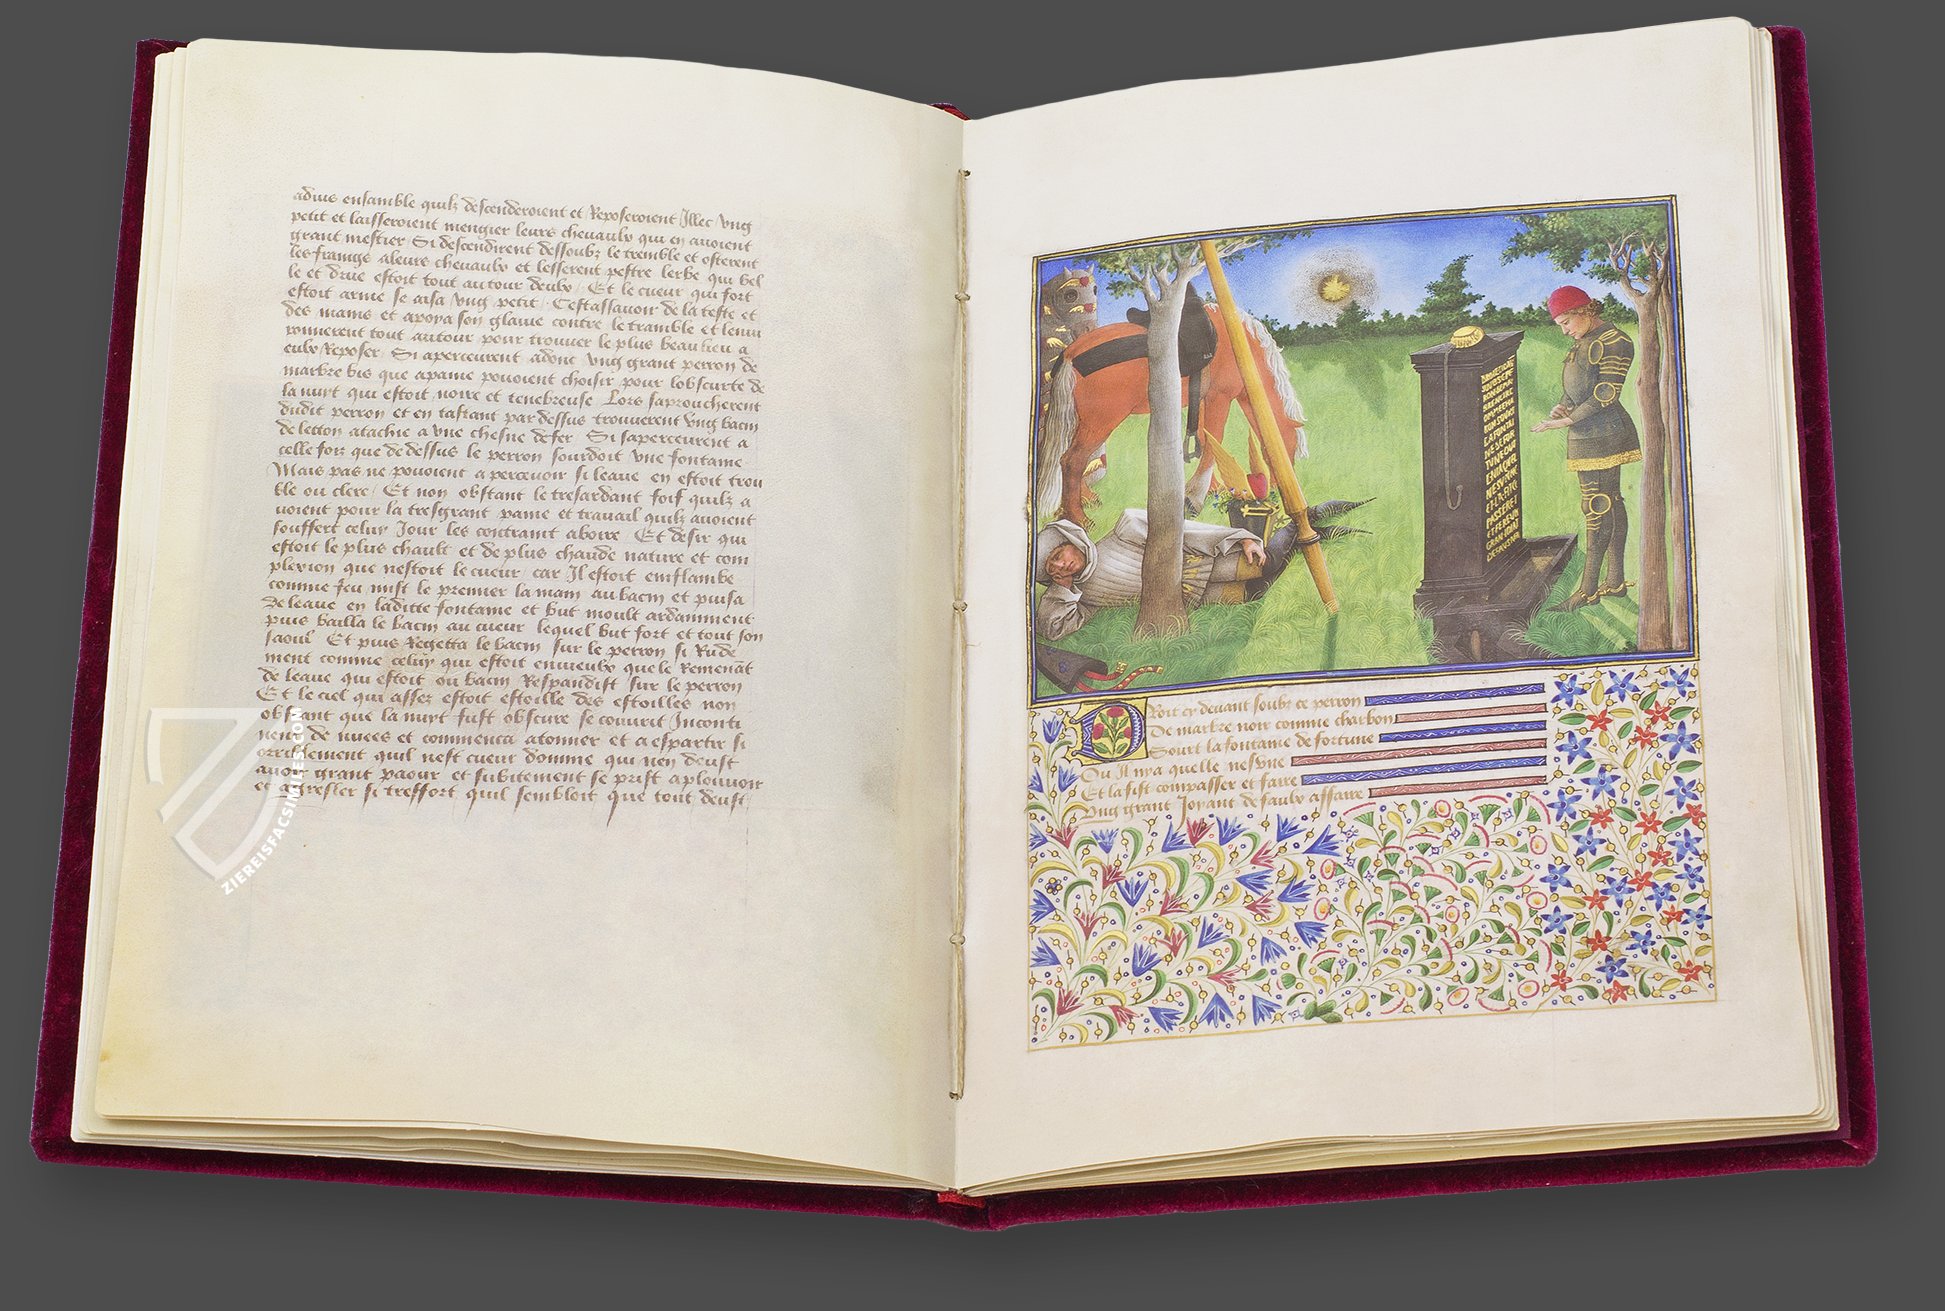 adviz ensamble quilz descenderoient et Reposeroient Illec vng
petit et laisseroient mengier leurs cheuaulx qui en auoient
grant mestier Si descendirent dessoubz le tremble et osterent
les frainge aleurs cheuaulx et lesserent pestre lerbe qui bel
le et drue estoit tout autour deulx / Et le cueur qui fort
estoit arme se aisa vng petit / Cestassauoir de la teste et
des mains et apoya son glaiue contre le tramble et lenui
ronnerent tout autour pour trouuer le plus beau lieu a
eulx Reposer / Si aperceurent adont vng grant perron de
marbre bis que apaine pouoient choisir pour lobscurte de
la nuyt qui estoit noire et tenebreuse Lors saproucherent
dudit perron et en tastant par dessus trouuerent vng bacin
de letton atachie a vne chesne de fer / Si saperceurent a
celle foiz que de dessus le perron sourdoit vne fontaine
Mais pas ne pouoient aperceuoir si leaue en estoit trou
ble ou clere / Et non obstant le tresardant soif quilz a
uoient pour la tresgrant paine et trauail quilz auoient
souffert celuy Jour les contraint aboire / Et desir qui
estoit le plus chault et de plus chaude nature et com
plexion que nestoit le cueur / car Il estoit enflambe
comme feu / mist le premier la main au bacin et puisa
de leaue en laditte fontaine et but moult ardamment
puis bailla le bacin au cueur lequel but fort et tout son
saoul Et puis Regetta le bacin sur le perron si Rude
ment comme celuy qui estoit ennieulx que le Remenāt
de leaue qui estoit ou bacin Respandist sur le perron
Et le ciel qui assez estoit estoille des estoilles non
obstant que la nuyt fust obscure se couurit Inconti
nent de nuees et commenca atonner et a espartir si
orriblement quil nest cueur domme qui nen deust
auoir grant paour et subitement se prist aplouuoir
et agresler si tresfort quil sembloit que tout deust
Droit cy deuant soubz ce perron
De marbre noir comme charbon
Sourt la fontaine de fortune
Ou Il nya quelle nesvne
Et la fist compasser et faire
Vng grant Joyant de faulx affaire
ZIEREISFACSIMILES.COM